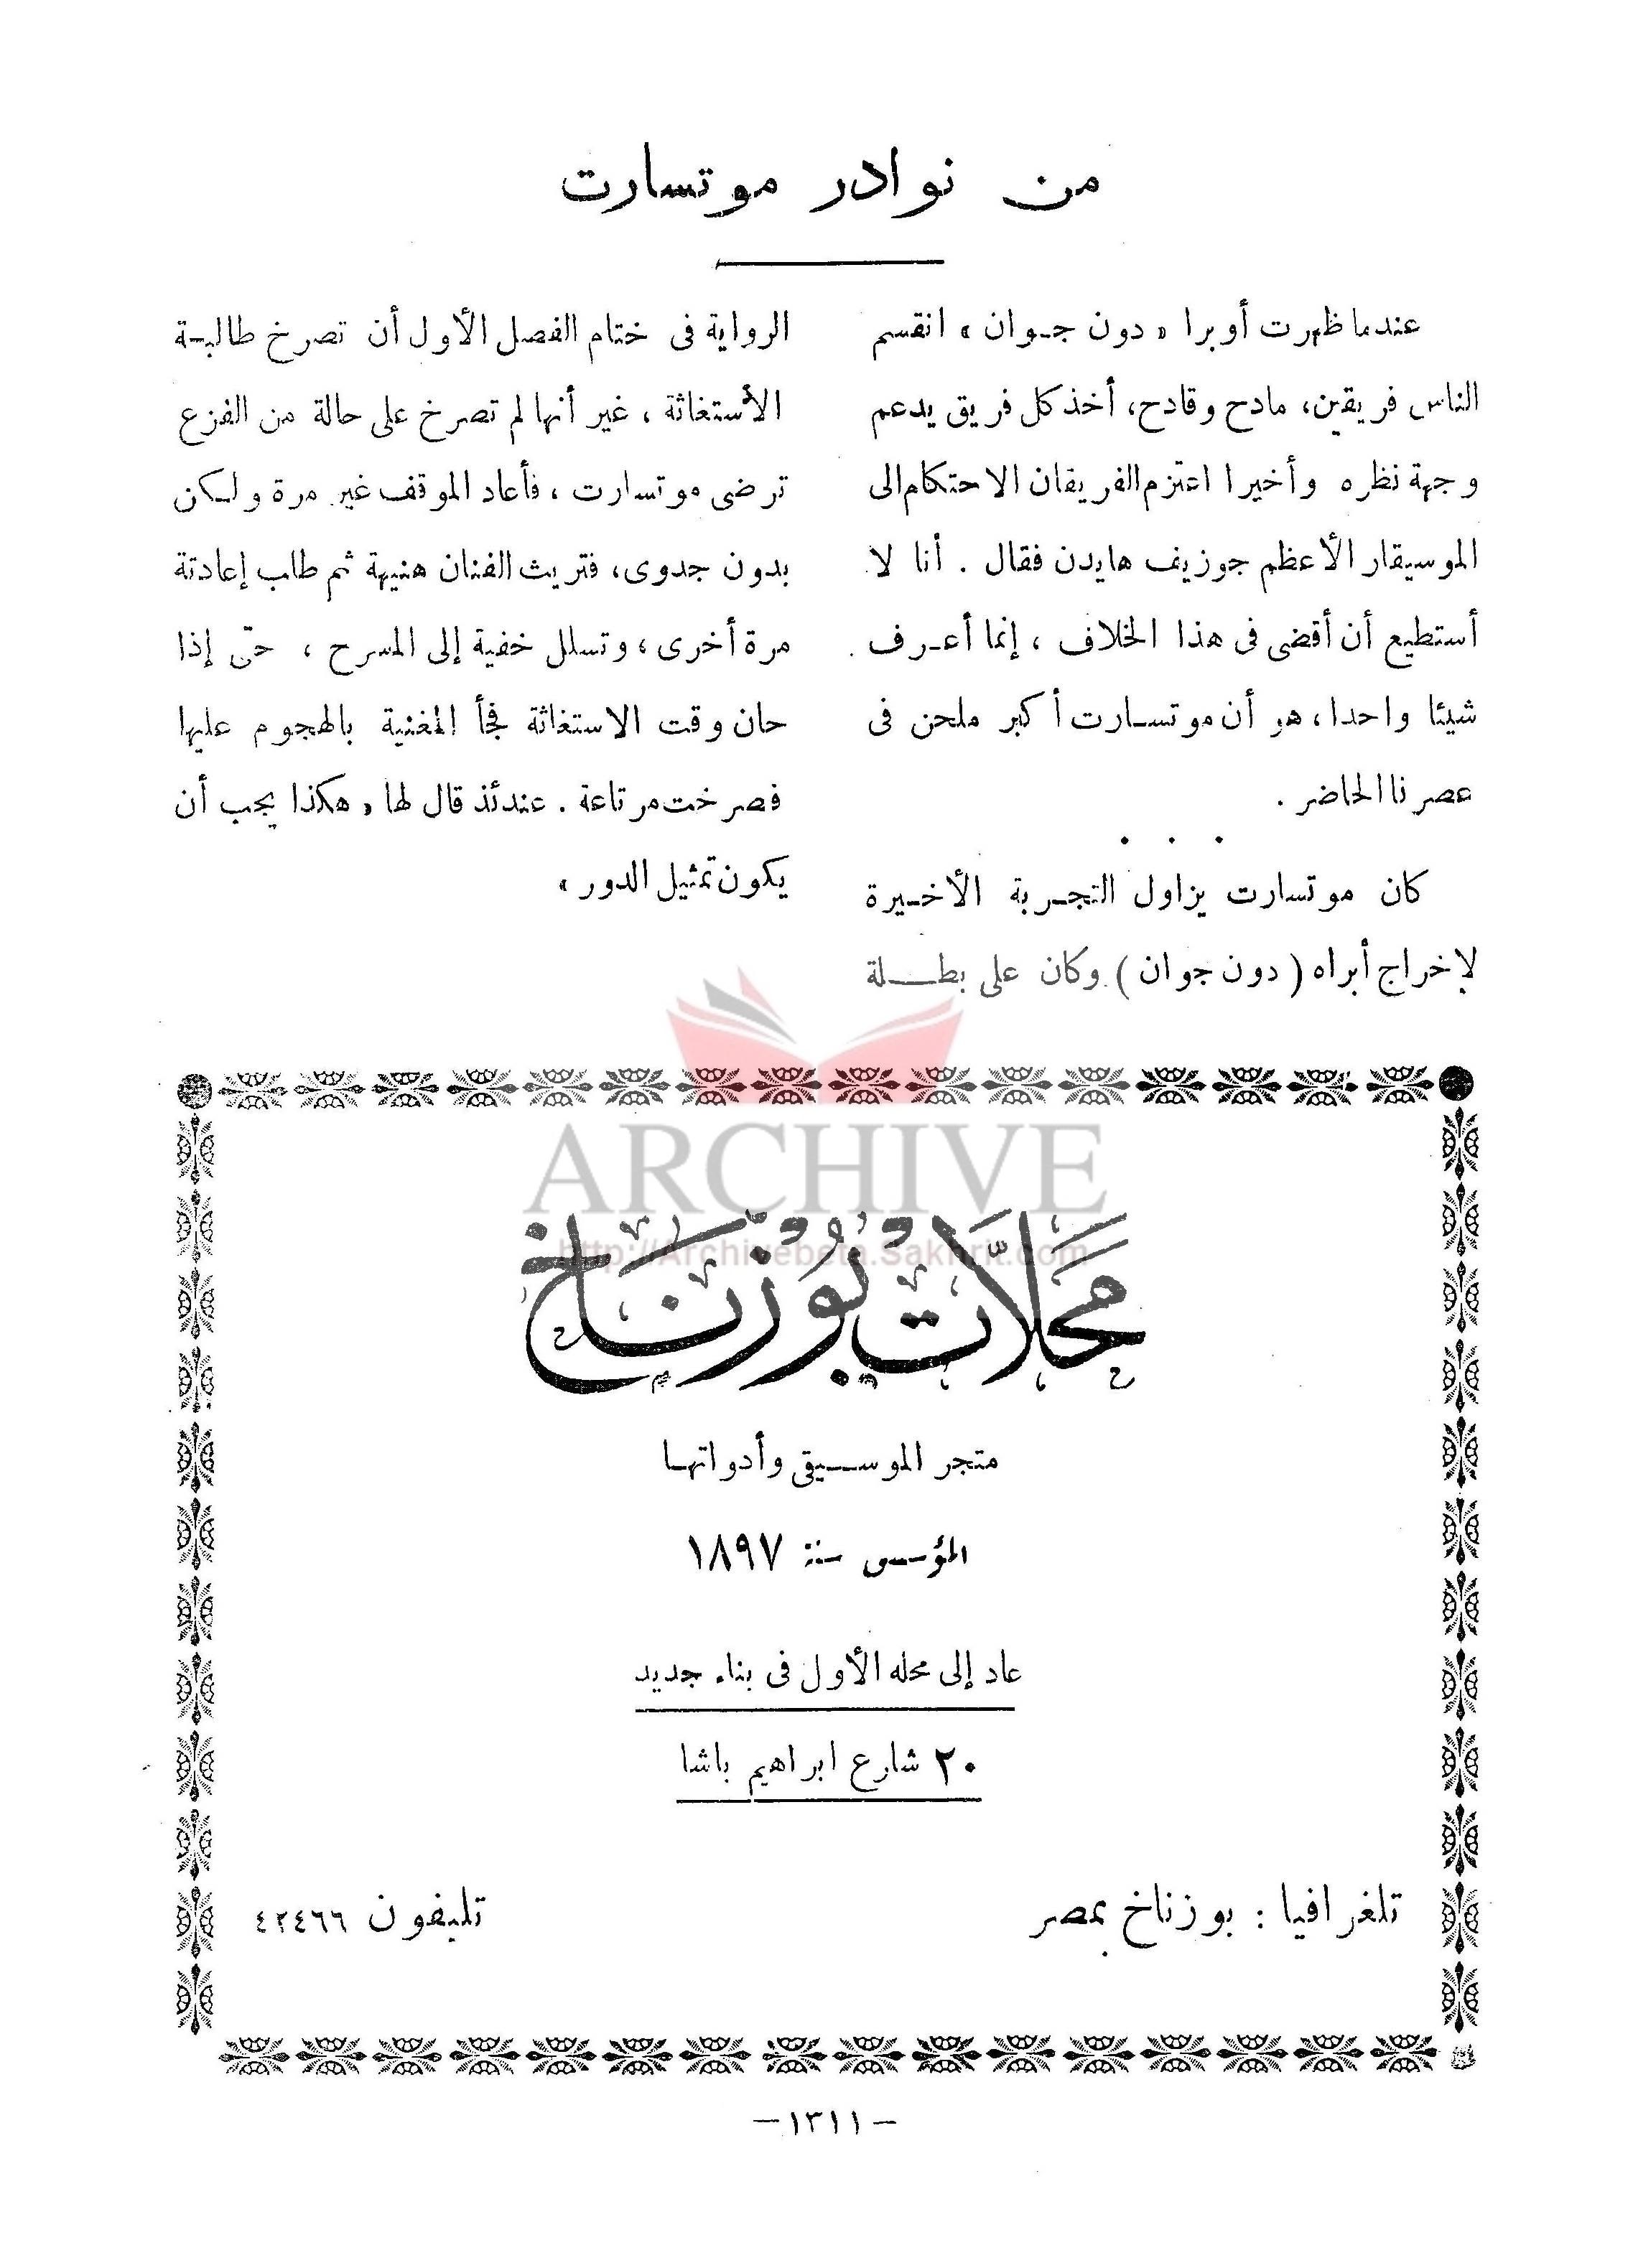 من نوادر موتسارت
عندما ظهرت أوبرا « دون جـوان » انقسم
الناس فريقين، مادح وقادح، أخذ كل فريق يدعم
وجهة نظره وأخيرا اعتزم الفريقان الاحتكام إلى
الموسيقار الأعظم جوزيف هايدن فقال . أنا لا
أستطيع أن أقضى فى هذا الخلاف ، إنما أعـرف
شيئا واحدا، هو أن موتسـارت أكبر ملحن فى
عصرنا الحاضر .
. . .
كان موتسارت يزاول التجـربة الأخـيرة
لإخراج أبراه ( دون جوان ) وكان على بطـــلة
الرواية فى ختام الفصل الأول أن تصرخ طالبـة
الأستغاثة ، غير أنها لم تصرخ على حالة من الفزع
ترضى موتسارت ، فأعاد الموقف غير مرة ولـكن
بدون جدوى، فتريث الفنان هنيهة ثم طلب إعادتة
مرة أخرى ، وتسلل خفية إلى المسرح ، حتى إذا
حان وقت الاستغاثة فجأ المغنية بالهجوم عليها
فصرخت مرتاعة . عندئذ قال لها « هكذا يجب أن
يكون تمثيل الدور »
ARCHIVE
http://Archivebeta.Sakhrit.com
مَحَلَّات بُوزنَاخ
متجر الموســيقى وأدواتهـا
المؤسس سنة ١٨٩٧
عاد إلى محله الأول فى بناء جديد
٢٠ شارع ابراهيم باشا
تلغرافيا : بوزناخ بمصر
تليفون ٤٢٤٦٦
—١٣١١—